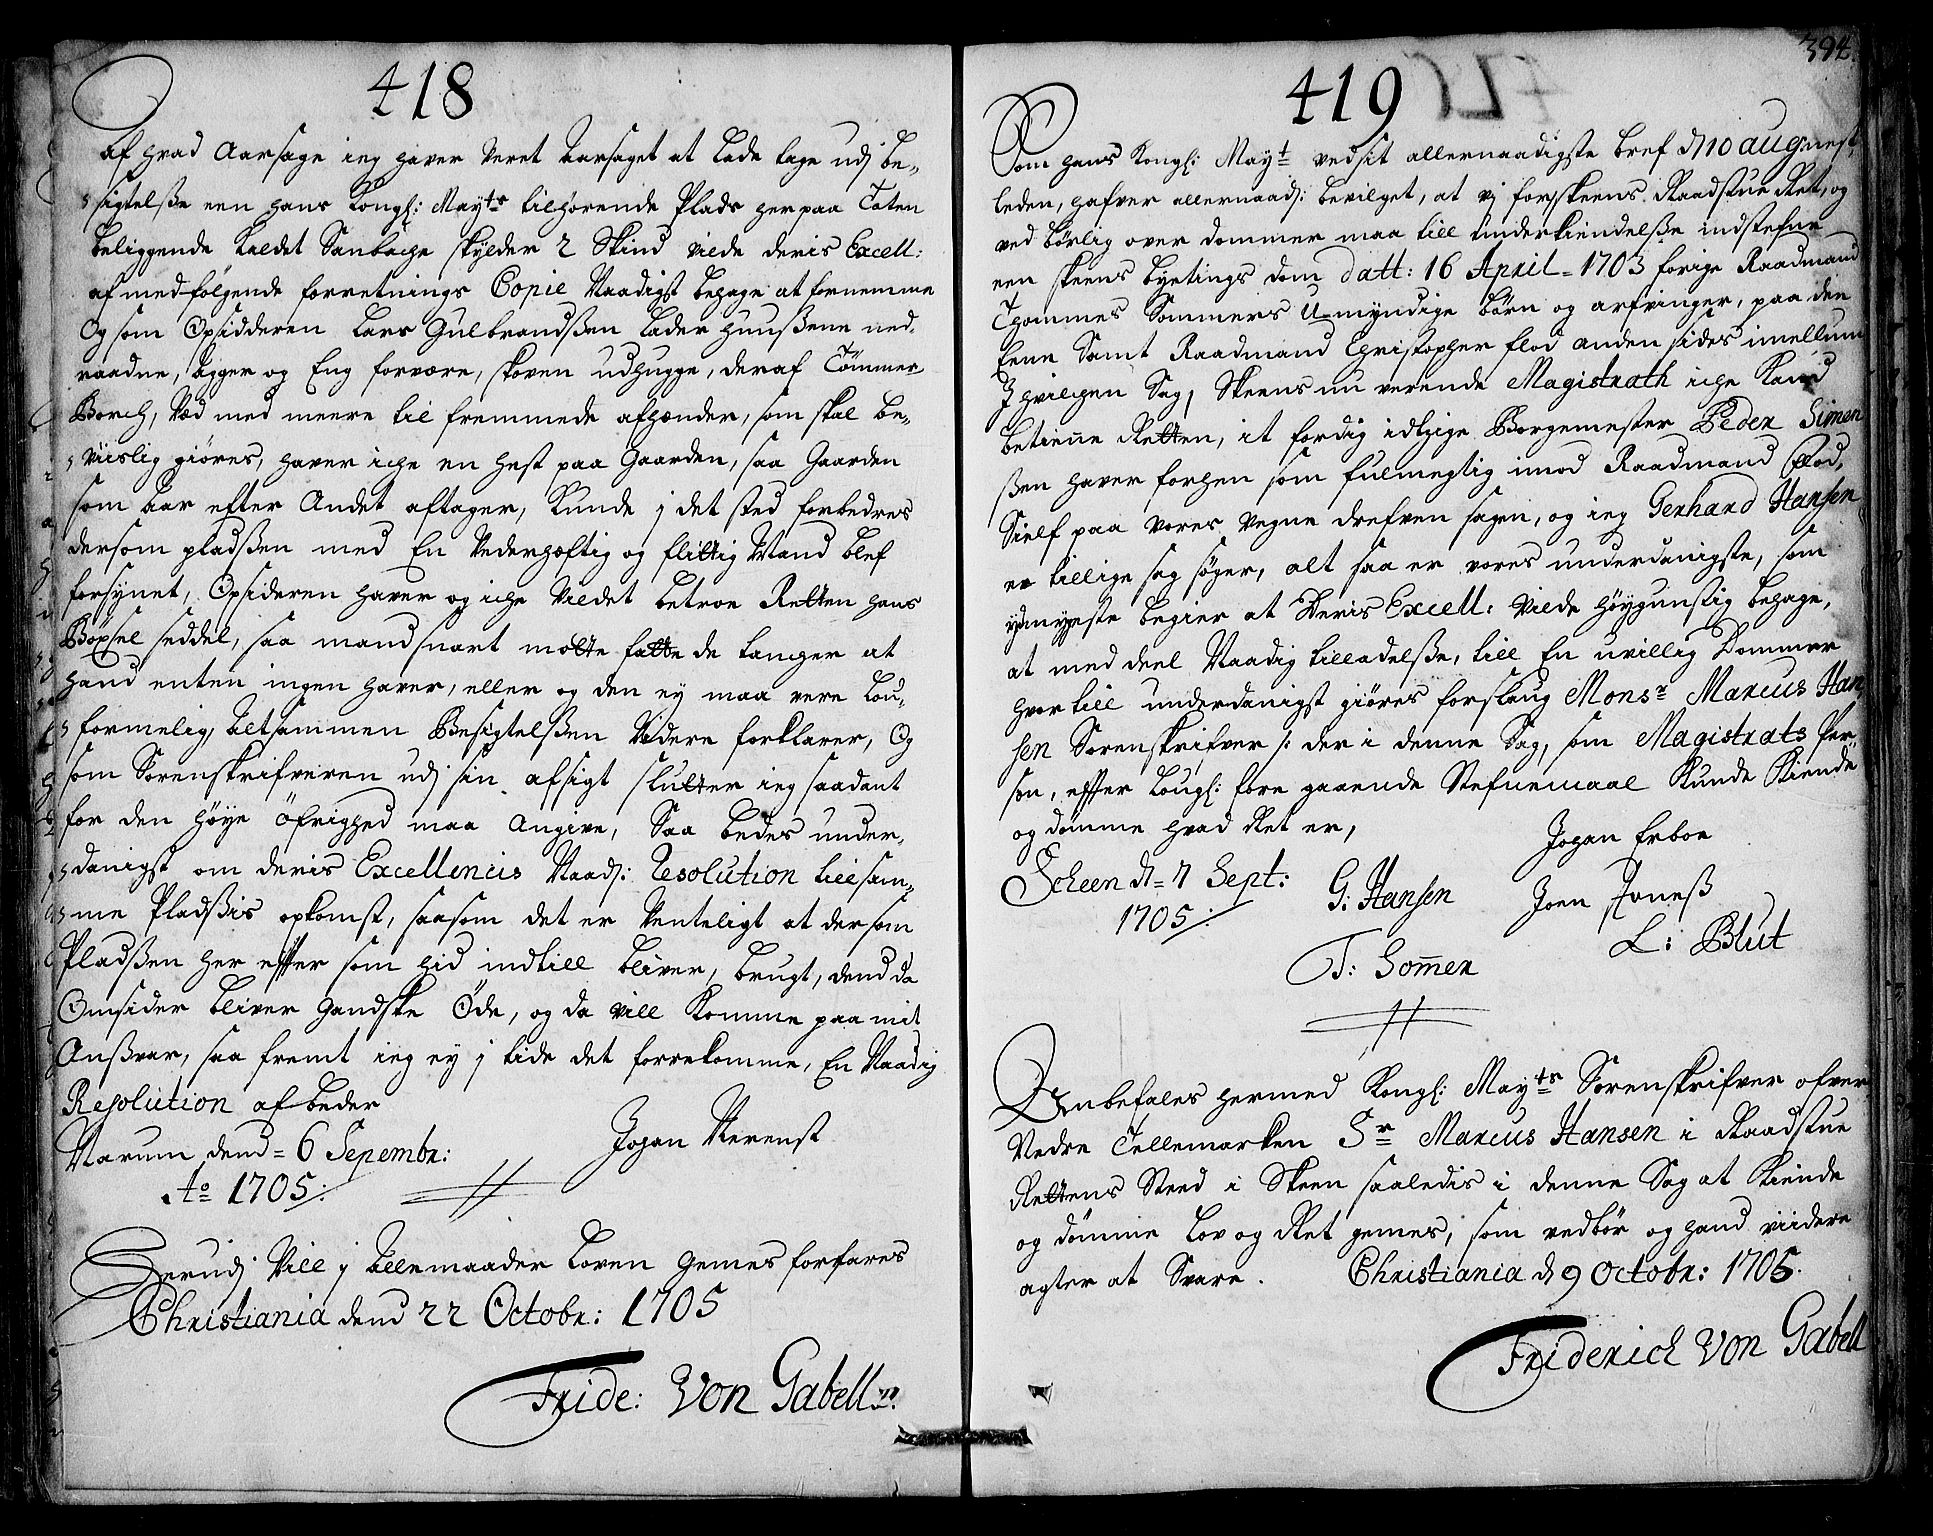 418
Af hvad Aarsage ieg haver veret Aarsaget at lade tage udj be-
sigtelsße een hans Kongl: Mayts tilhørende Plads her paa Toten
beliggende kaldet Sanbache skylder 2 Skind vilde deris Excell:
af medfölgende forretnings Copie Naadigst behage at fornemme
Og som Opsidderen Lars Gulbrandsßen lader huusßene ned-
raadne, Agger og Eng forvore, skoven udhugge, deraf Tömmer
Borch, Ved med meere til fremmede afhænder, som skal be-
viislig giöres, haver iche en hest paa Gaarden, saa Gaarden
som Aar efter Andet aftager, Kunde j det sted forbedres
dersom pladsßen med En Vederhæftig og flittig Mand blef
forsynet, Opsideren haver og iche vildet betroe Retten hans
Böxsel seddel, saa mand snart motte fatte de tancher at
hand enten ingen haver, eller og den ey maa vere lou-
formelig, altsammen Besigtelsßen videre forklarer, Og
som Sorenskrifveren udj sin afsigt slutter ieg saadant
for den höye Öfrighed maa Angive, Saa bedes under-
danigst om deris Excellencis Naad: Resolution till sam-
me Pladsßis opkomst, saasom det er Venteligt at dersom
Pladsßen her effter som hid indtill bliver, brugt, dend da
Omsider bliver gandske Öde, og da vill Komme paa mit
Ansßvar, saa fremt ieg ey j tide det forrekomme, En Naadig
Resolution af beder
Narum dend = 6 Sepembr: Johan Nerenst
Ao 1705:
Herudj Vill j Allemaader Loven gemes forfares
Christiania dend 22 Octobr: 1705
Fride: Von Gabell
394.
419
Som hans Kongl: Mayt ved sit allernaadigste bref d 10 aug nest
leden, hafver allernaad: bevilget, at vj for skeens Raadstue Ret, og
ved börlig over dommer maa till underkiendelsße indstefne
een skeens byetings dom datt: 16 April = 1703 forige Raadmand
Thommes Sommers U-myndige börn og arfvinger, paa den
Eene Samt Raadmand Christopher flod anden sides imellum
I hvilchen Sag, Skeens nu verende Magistrath iche Kand
betienne Retten, it fordig idtzige Borgemester Peder Simen
sßen haver forhen som fulmegtig imod Raadmand Flod,
Sielf paa vores vegne drefven sagen, og ieg Gerhard Hansen
er tillige sag söger, alt saa er vores underdanigste, som
ydmygeste begier at Deris Excell: vilde höygunstig behage,
at med deel Naadig tilladelsße, till En uvillig Dommer
hvor till underdanigst giöres forslaug Monsr Marcus Han
sen Sorenskrifver /: der i denne Sag, som Magistrats Per-
son, effter Lougl: fore gaaende Stefnemaal Kunde Kiende
og dömme hvad Ret er,
Scheen d= 7 Sept: G: Hansen Johan Erboe
1705/: Joen Joneß
T: Som̄er L: Blut
Anbefales hermed Kongl: Mayts Sorenskrifver ofver
Nedre Tellemarken Sr Marcus Hansen i Raadstue
Rettens Sted i Skeen saaledis i denne Sag at Kiende
og dömme Lov og Ret gemes, som vedbör og hand viidere
agter at Svare. Christiania d 9 Octobr: 1705.
Friderich Von Gabell